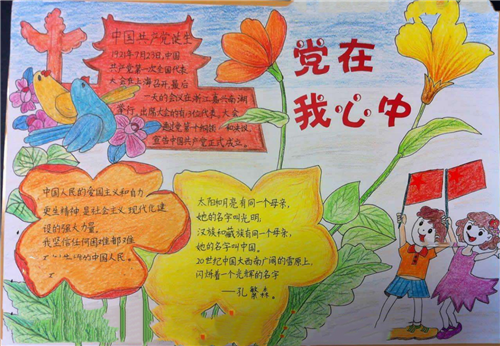 党在
我心中
中国共产党诞生
1921年7月23日,中国
共产党第一次全国代表
大会在上海召开,最后
一天的会议在浙江嘉兴南湖
举行,出席大会的有13位代表,大会
通过党第十纲领 和决议,
宣告中国共产党正式成立。
中国人民的爱国主义和自力
更生精神,是社会主义现代化建
设的强大力量,
我坚信任何困难都难
的中国人民。
太阳和月亮有同一个母亲,
她的名字叫光明,
汉族和藏族有同一个母亲,
她的名字叫中国。
20世纪中国大西南广阔的雪原上,
闪烁着一个光辉的名字
——孔繁森。